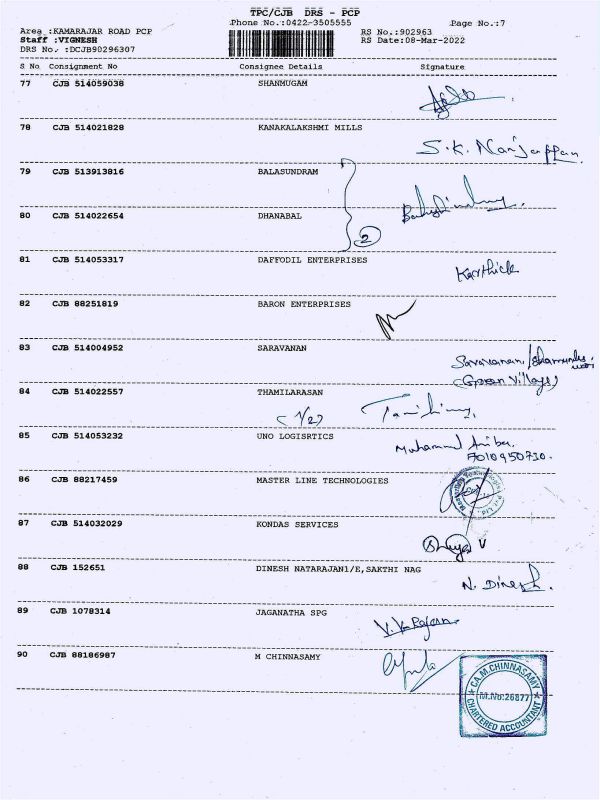 TPC/CJB DRS - PCP
Phone No.:0422-3505555
Page No.:7
Area :KAMARAJAR ROAD PCP
RS No.:902963
Staff :VIGNESH
RS Date:08-Mar-2022
DRS No. :DCJB90296307
S No Consignment No Consignee Details Signature
77 CJB 514059038 SHANMUGAM
78 CJB 514021828 KANAKALAKSHMI MILLS
S.K. Nanjappan
79 CJB 513913816 BALASUNDRAM
80 CJB 514022654 DHANABAL
2
81 CJB 514053317 DAFFODIL ENTERPRISES
Karthick
82 CJB 88251819 BARON ENTERPRISES
83 CJB 514004952 SARAVANAN
Saravanan
84 CJB 514022557 THAMILARASAN
(1/2)
85 CJB 514053232 UNO LOGISRTICS
7010950730.
86 CJB 88217459 MASTER LINE TECHNOLOGIES
87 CJB 514032029 KONDAS SERVICES
88 CJB 152651 DINESH NATARAJAN1/E,SAKTHI NAG
N. Dinesh.
89 CJB 1078314 JAGANATHA SPG
90 CJB 88186987 M CHINNASAMY
CA.M.CHINNASAMY
M.No:26877
CHARTERED ACCOUNTANT